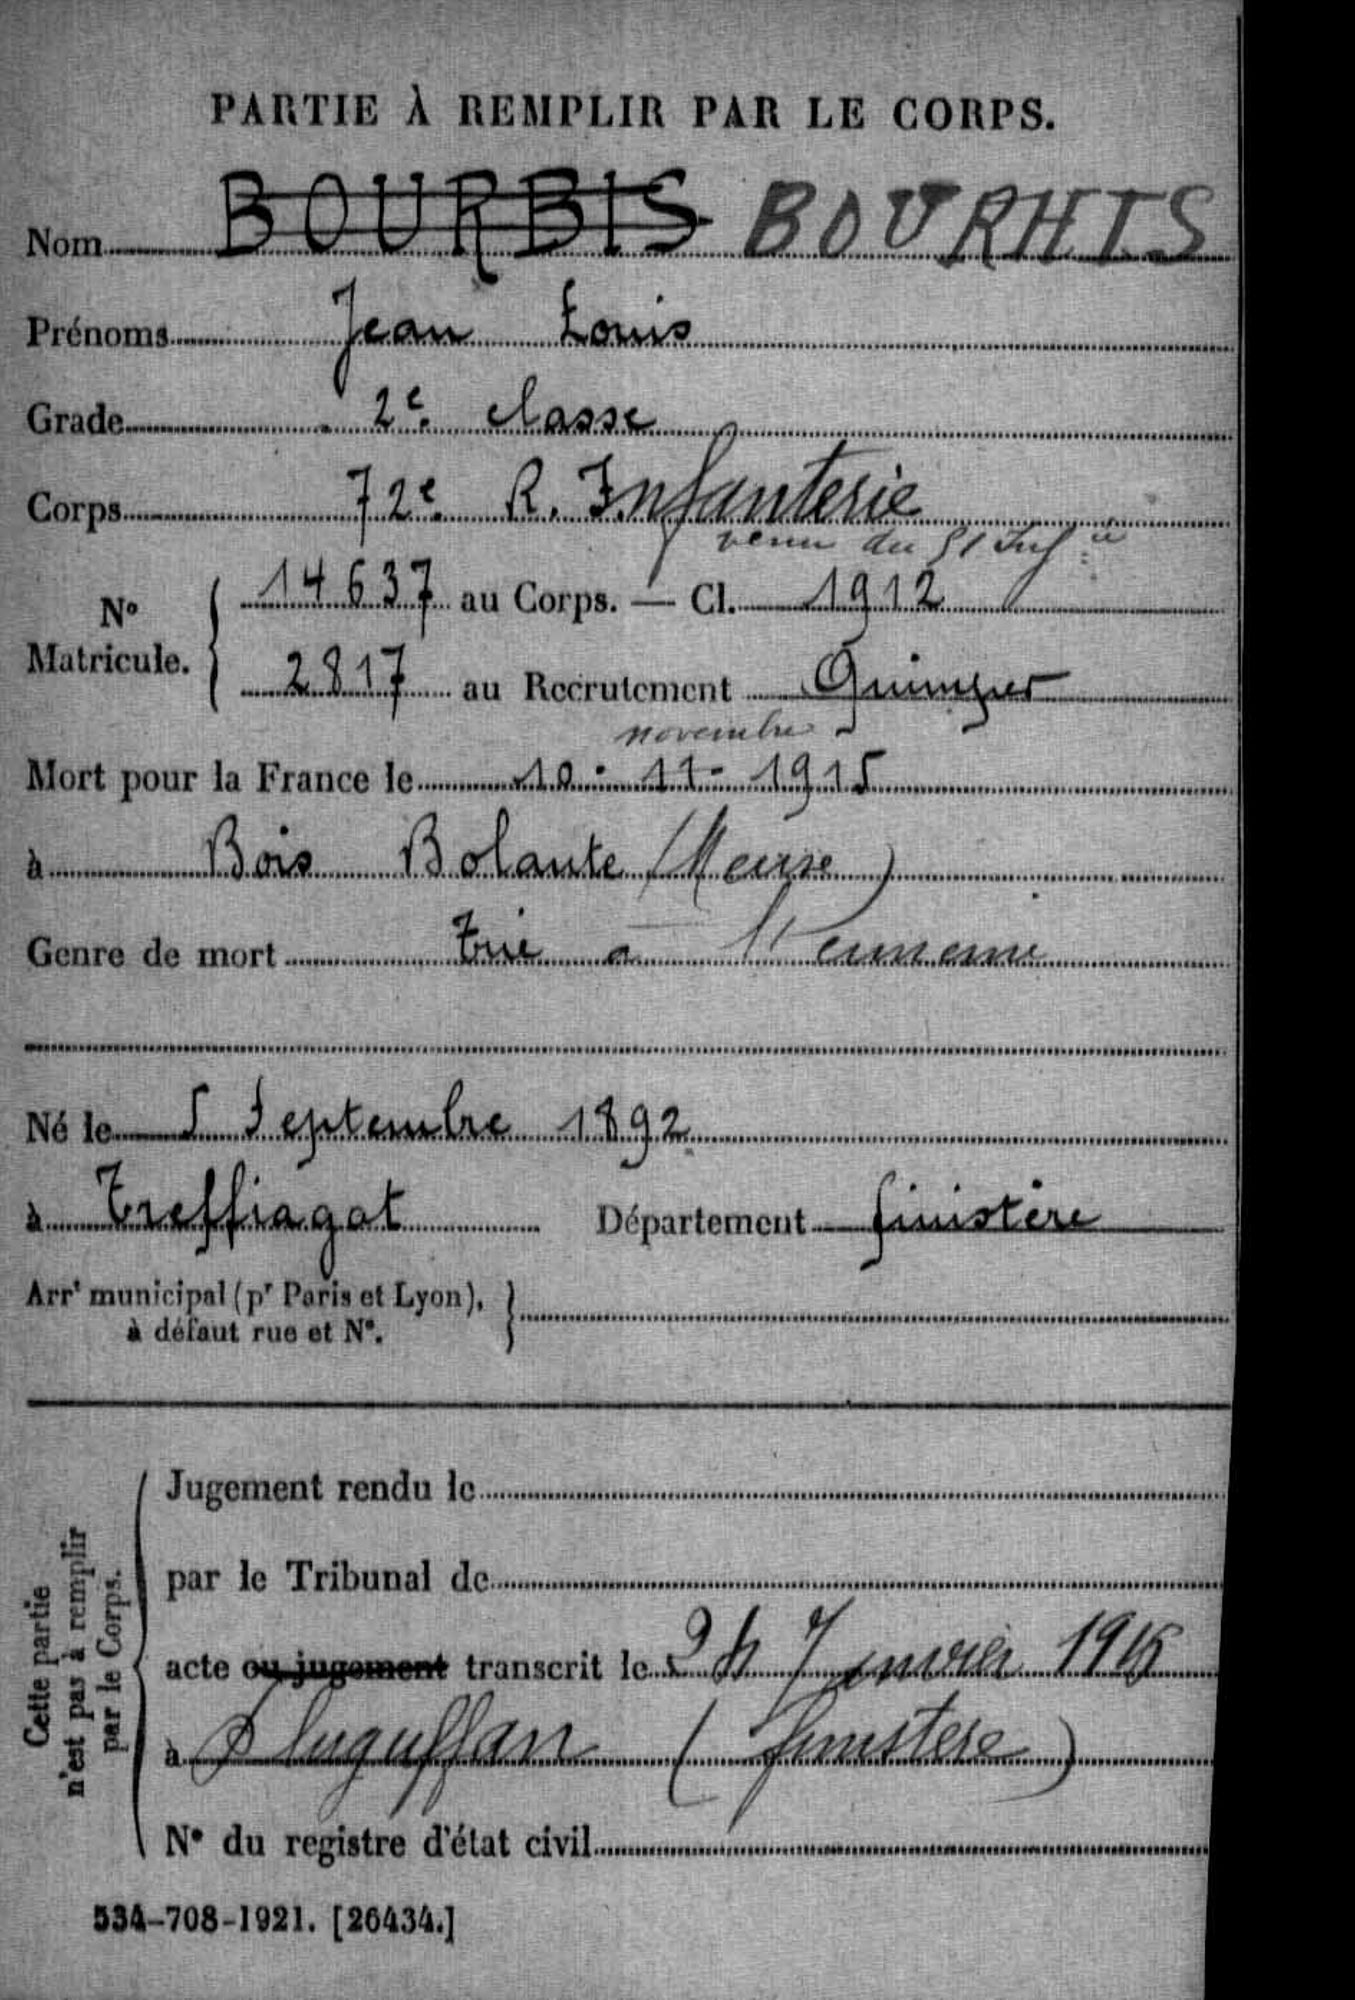 PARTIE À REMPLIR PAR LE CORPS.
Nom BOURBIS BOURHIS
Prénoms Jean Louis
Grade 2e classe
Corps 72e R. Infanterie
venu du 51 Infie
No Matricule. 14637 au Corps. — Cl. 1912
2817 au Recrutement Quimper
novembre
Mort pour la France le 10-11-1915
à Bois Bolante (Meuse)
Genre de mort Tué a l'ennemi
Né le 5 Septembre 1892
à Treffiagat Département finistère
Arrt municipal (pr Paris et Lyon),
à défaut rue et No.
Cette partie
n'est pas à remplir
par le Corps.
Jugement rendu le
par le Tribunal de
acte ou jugement transcrit le Janvier
à Pluguffan (finistere)
No du registre d'état civil
534-708-1921. [26434.]